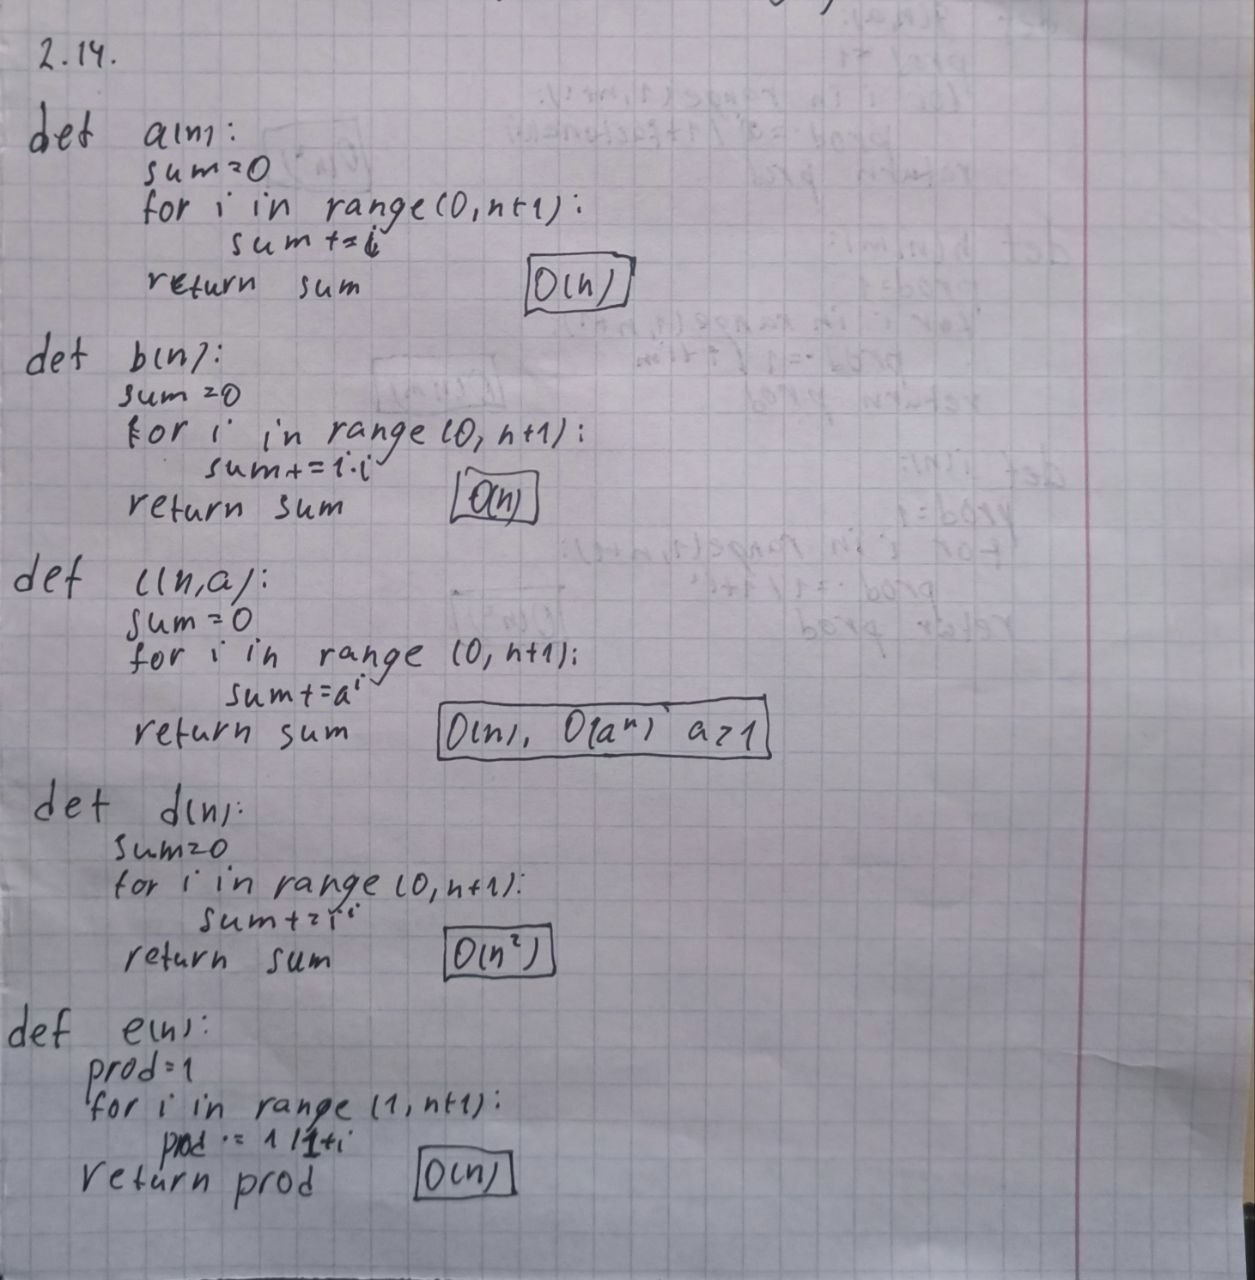 2.14.
def a(n):
sum=0
for i in range(0,n+1):
sum+=i
return sum
O(n)
def b(n):
sum=0
for i in range(0,n+1):
sum+=i·i
return sum
O(n)
def c(n,a):
sum=0
for i in range (0,n+1):
sum+=aⁱ
return sum
O(n), O(aⁿ) a≥1
def d(n):
sum=0
for i in range (0,n+1):
sum+=iⁱ
return sum
O(n²)
def e(n):
prod=1
for i in range (1,n+1):
prod ·= 1/1+i
return prod
O(n)